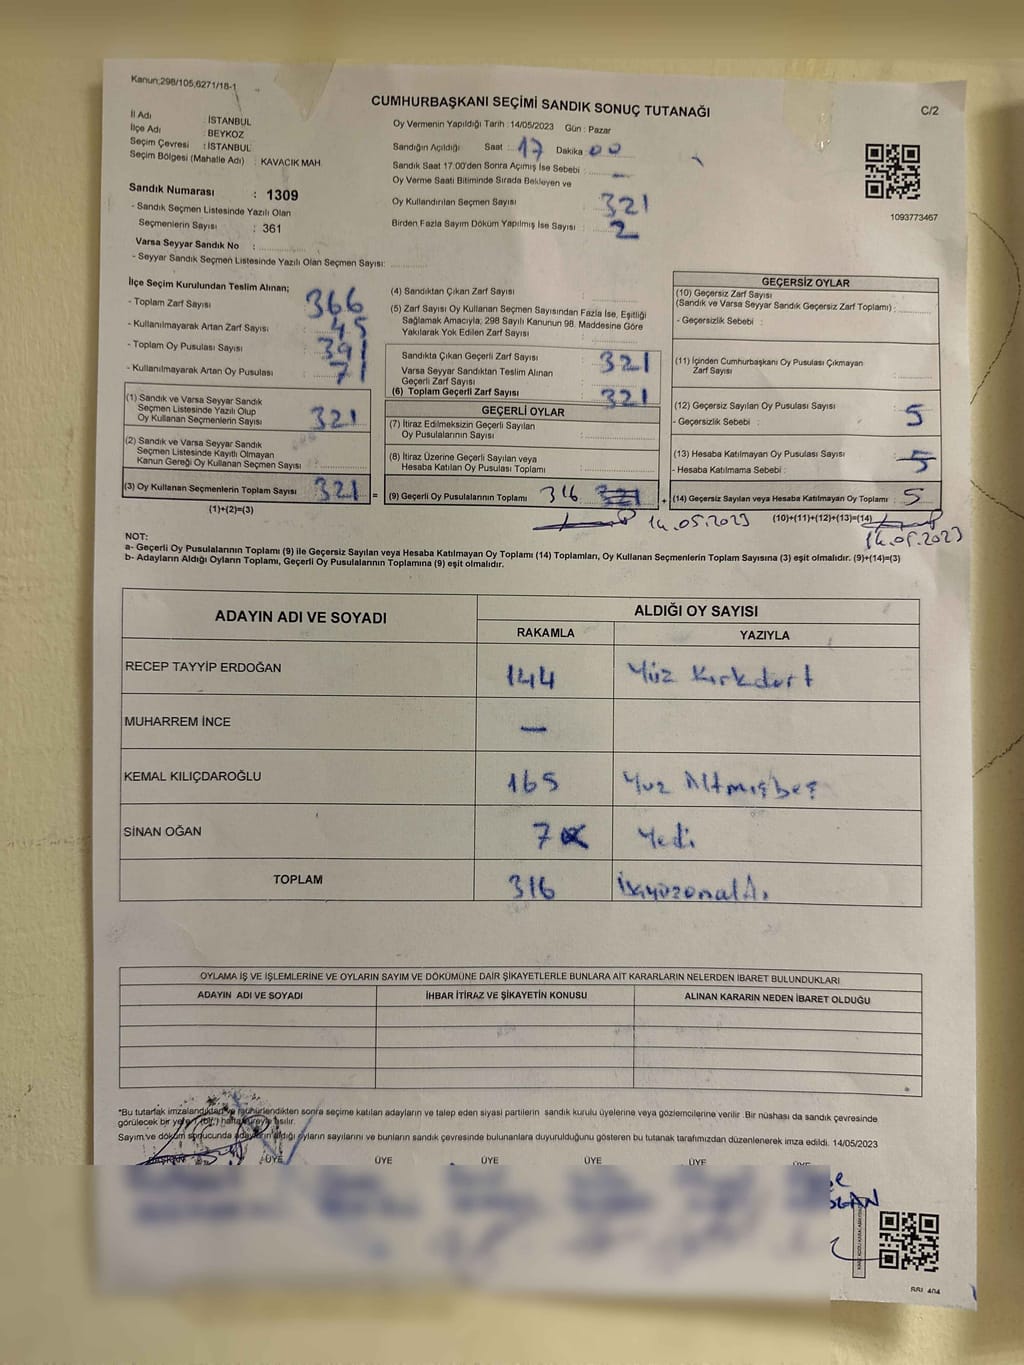 Kanun;298/105,6271/18-1
CUMHURBAŞKANI SEÇİMİ SANDIK SONUÇ TUTANAĞI
C/2
İl Adı : İSTANBUL
İlçe Adı : BEYKOZ
Seçim Çevresi : İSTANBUL
Seçim Bölgesi (Mahalle Adı) : KAVACIK MAH.
Sandık Numarası : 1309
- Sandık Seçmen Listesinde Yazılı Olan
Seçmenlerin Sayısı : 361
Varsa Seyyar Sandık No :
- Seyyar Sandık Seçmen Listesinde Yazılı Olan Seçmen Sayısı:
Oy Vermenin Yapıldığı Tarih : 14/05/2023 Gün : Pazar
Sandığın Açıldığı Saat : 17 Dakika : 00
Sandık Saat 17.00'den Sonra Açımış İse Sebebi : —
Oy Verme Saati Bitiminde Sırada Bekleyen ve
Oy Kullandırılan Seçmen Sayısı : 321
Birden Fazla Sayım Döküm Yapılmış İse Sayısı : 2
1093773467
İlçe Seçim Kurulundan Teslim Alınan;
- Toplam Zarf Sayısı : 366
- Kullanılmayarak Artan Zarf Sayısı : 45
- Toplam Oy Pusulası Sayısı : 391
- Kullanılmayarak Artan Oy Pusulası : 71
(1) Sandık ve Varsa Seyyar Sandık
Seçmen Listesinde Yazılı Olup
Oy Kullanan Seçmenlerin Sayısı : 321
(2) Sandık ve Varsa Seyyar Sandık
Seçmen Listesinde Kayıtlı Olmayan
Kanun Gereği Oy Kullanan Seçmen Sayısı :
(3) Oy Kullanan Seçmenlerin Toplam Sayısı : 321
(1)+(2)=(3)
(4) Sandıktan Çıkan Zarf Sayısı :
(5) Zarf Sayısı Oy Kullanan Seçmen Sayısından Fazla İse, Eşitliği
Sağlamak Amacıyla; 298 Sayılı Kanunun 98. Maddesine Göre
Yakılarak Yok Edilen Zarf Sayısı :
Sandıkta Çıkan Geçerli Zarf Sayısı : 321
Varsa Seyyar Sandıktan Teslim Alınan
Geçerli Zarf Sayısı :
(6) Toplam Geçerli Zarf Sayısı : 321
GEÇERLİ OYLAR
(7) İtiraz Edilmeksizin Geçerli Sayılan
Oy Pusulalarının Sayısı :
(8) İtiraz Üzerine Geçerli Sayılan veya
Hesaba Katılan Oy Pusulası Toplamı :
= (9) Geçerli Oy Pusulalarının Toplamı : 316 321 +
14.05.2023
GEÇERSİZ OYLAR
(10) Geçersiz Zarf Sayısı
(Sandık ve Varsa Seyyar Sandık Geçersiz Zarf Toplamı) :
- Geçersizlik Sebebi :
(11) İçinden Cumhurbaşkanı Oy Pusulası Çıkmayan
Zarf Sayısı :
(12) Geçersiz Sayılan Oy Pusulası Sayısı : 5
- Geçersizlik Sebebi :
(13) Hesaba Katılmayan Oy Pusulası Sayısı : 5
- Hesaba Katılmama Sebebi :
(14) Geçersiz Sayılan veya Hesaba Katılmayan Oy Toplamı : 5
(10)+(11)+(12)+(13)=(14)
14.05.2023
NOT:
a- Geçerli Oy Pusulalarının Toplamı (9) ile Geçersiz Sayılan veya Hesaba Katılmayan Oy Toplamı (14) Toplamları, Oy Kullanan Seçmenlerin Toplam Sayısına (3) eşit olmalıdır. (9)+(14)=(3)
b- Adayların Aldığı Oyların Toplamı, Geçerli Oy Pusulalarının Toplamına (9) eşit olmalıdır.
ADAYIN ADI VE SOYADI
ALDIĞI OY SAYISI
RAKAMLA YAZIYLA
RECEP TAYYİP ERDOĞAN 144 Yüz Kırkdört
MUHARREM İNCE —
KEMAL KILIÇDAROĞLU 165 Yuz Altmışbeş
SİNAN OĞAN 7 Yedi
TOPLAM 316 Üçyüzonaltı
OYLAMA İŞ VE İŞLEMLERİNE VE OYLARIN SAYIM VE DÖKÜMÜNE DAİR ŞİKAYETLERLE BUNLARA AİT KARARLARIN NELERDEN İBARET BULUNDUKLARI
ADAYIN ADI VE SOYADI İHBAR İTİRAZ VE ŞİKAYETİN KONUSU ALINAN KARARIN NEDEN İBARET OLDUĞU
*Bu tutanak imzalandıktan ve mühürlendikten sonra seçime katılan adayların ve talep eden siyasi partilerin sandık kurulu üyelerine veya gözlemcilerine verilir. Bir nüshası da sandık çevresinde
görülecek bir yere 1 (bir) hafta süreyle asılır.
Sayım ve döküm sonucunda adayların aldığı oyların sayılarını ve bunların sandık çevresinde bulunanlara duyurulduğunu gösteren bu tutanak tarafımızdan düzenlenerek imza edildi. 14/05/2023
BAŞKAN ÜYE ÜYE ÜYE ÜYE ÜYE ÜYE